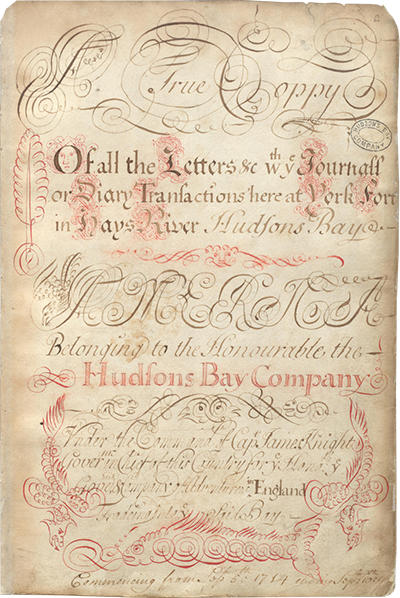 A True Coppy
HUDSONS BAY
COMPANY
Of all the Letters &c wth ye Journall
or Diary Transactions here at York Fort
in Hays River Hudsons Bay
AMERICA
Belonging to the Honourable the
Hudsons Bay Company
Under the Command of Capt James Knight
Govern in Chief of this Country for ye Honor ye
Company of England
Trading into Bay
Commencing from Sepr 5th 1714